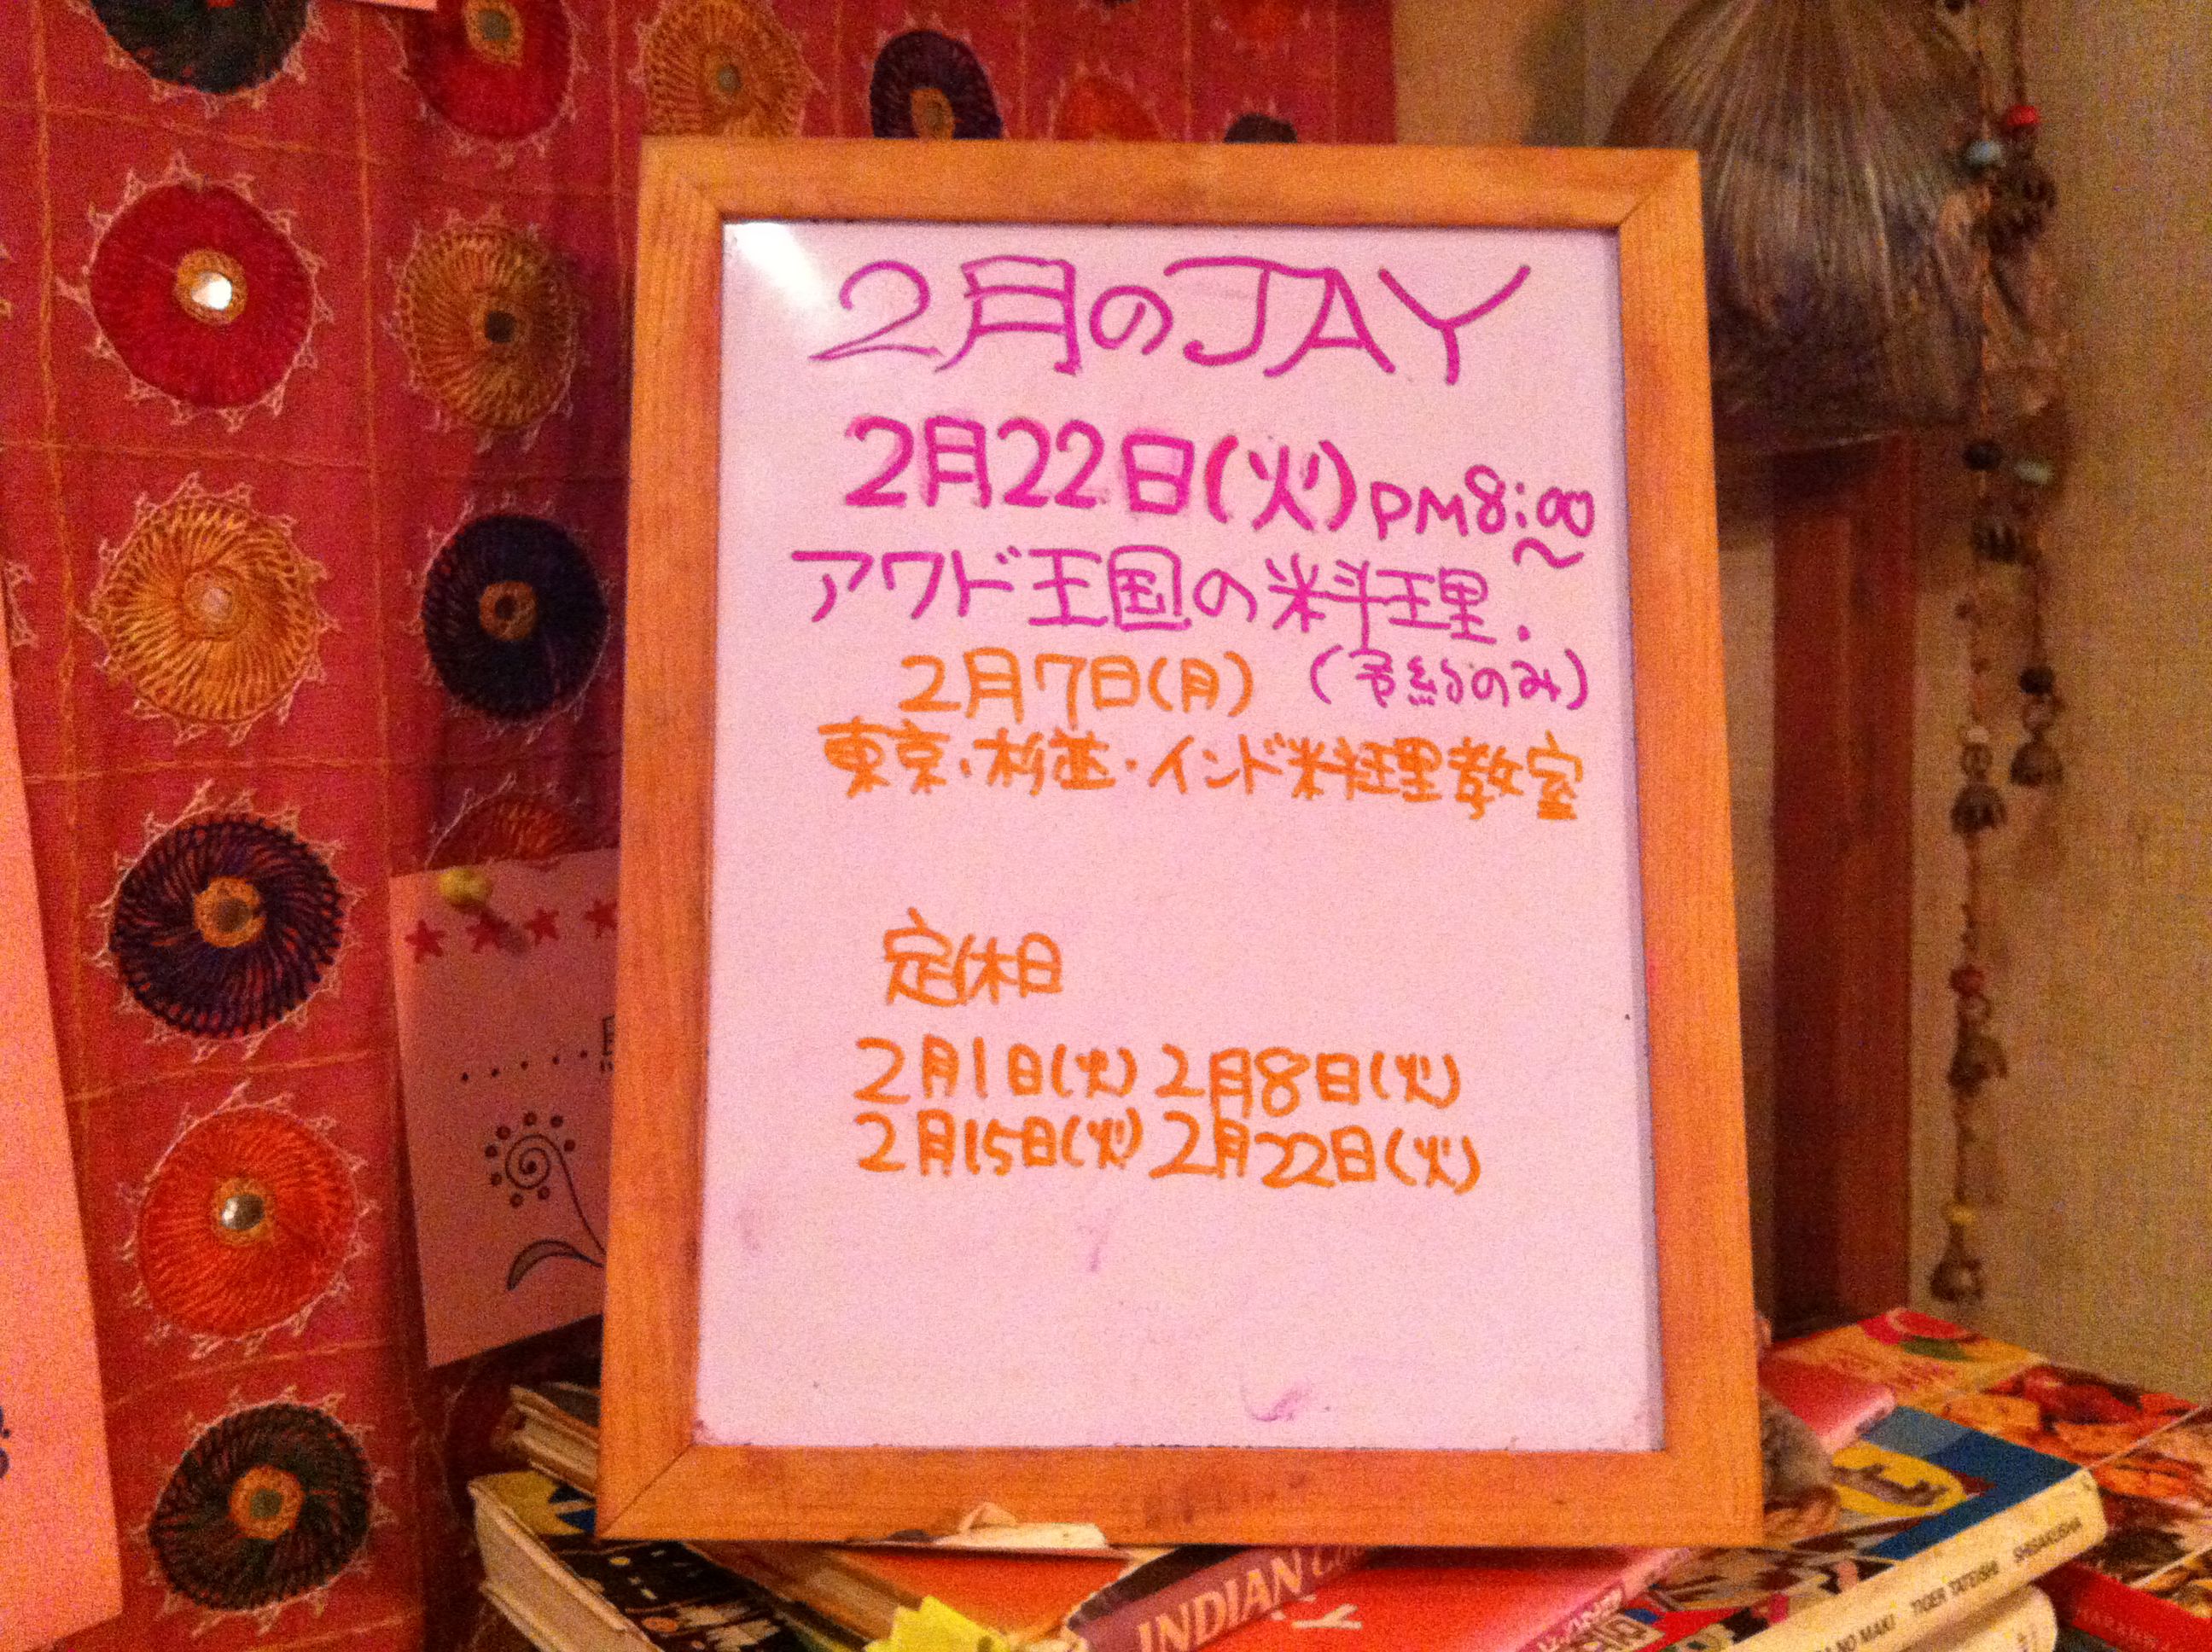 2月のJAY
2月22日(火)PM8:00〜
アワド王国の料理.
(予約のみ)
2月7日(月)
東京・杉並・インド料理教室
定休日
2月1日(火) 2月8日(火)
2月15日(火) 2月22日(火)
INDIAN
NO MAKI TIGER TATEISHI